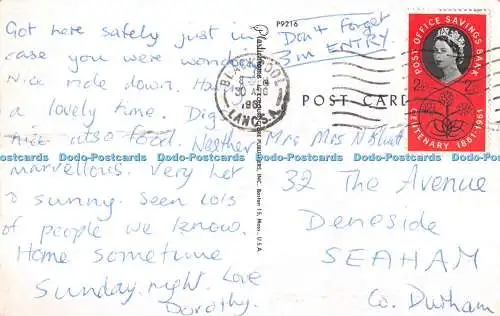 Got here safely just in
case you were wondering
Nice ride down. Having
a lovely time. Digs
nice also food. Weather
marvellous. Very hot
& sunny. Seen lots
of people we know.
Home sometime
Sunday night. Love
Dorothy.
P9216
Plastichrome
BOSTON 15, MASS., U.S.A.
Don't Forget
3m ENTRY
POST CARD
BLACKPOOL
LANCS.
POST OFFICE SAVINGS BANK
2½D
CENTENARY 1861-1961
Mr & Mrs N
32 The Avenue
Deneside
SEAHAM
Co. Durham
Dodo-Postcards Dodo-Postcards Dodo-Postcards Dodo-Postcards Dodo-Postcards Dodo-Postcards